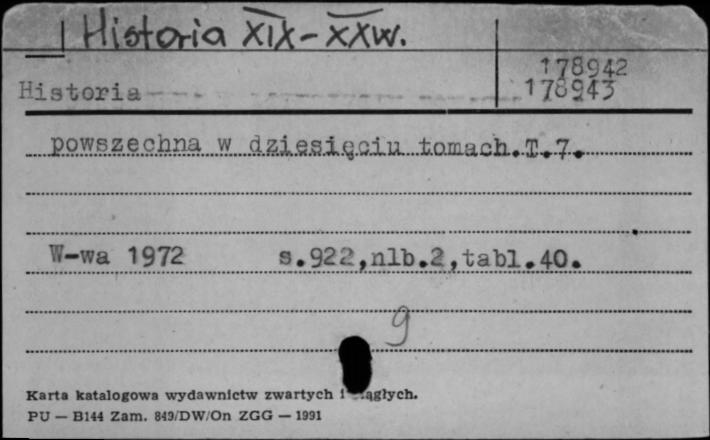 Historia XIX-XXw.
178942
Historia 178943
powszechna w dziesięciu tomach.T.7.
W-wa 1972 s.922,nlb.2,tabl.40.
9
Karta katalogowa wydawnictw zwartych i
PU — B144 Zam. 849/DW/On ZGG — 1991